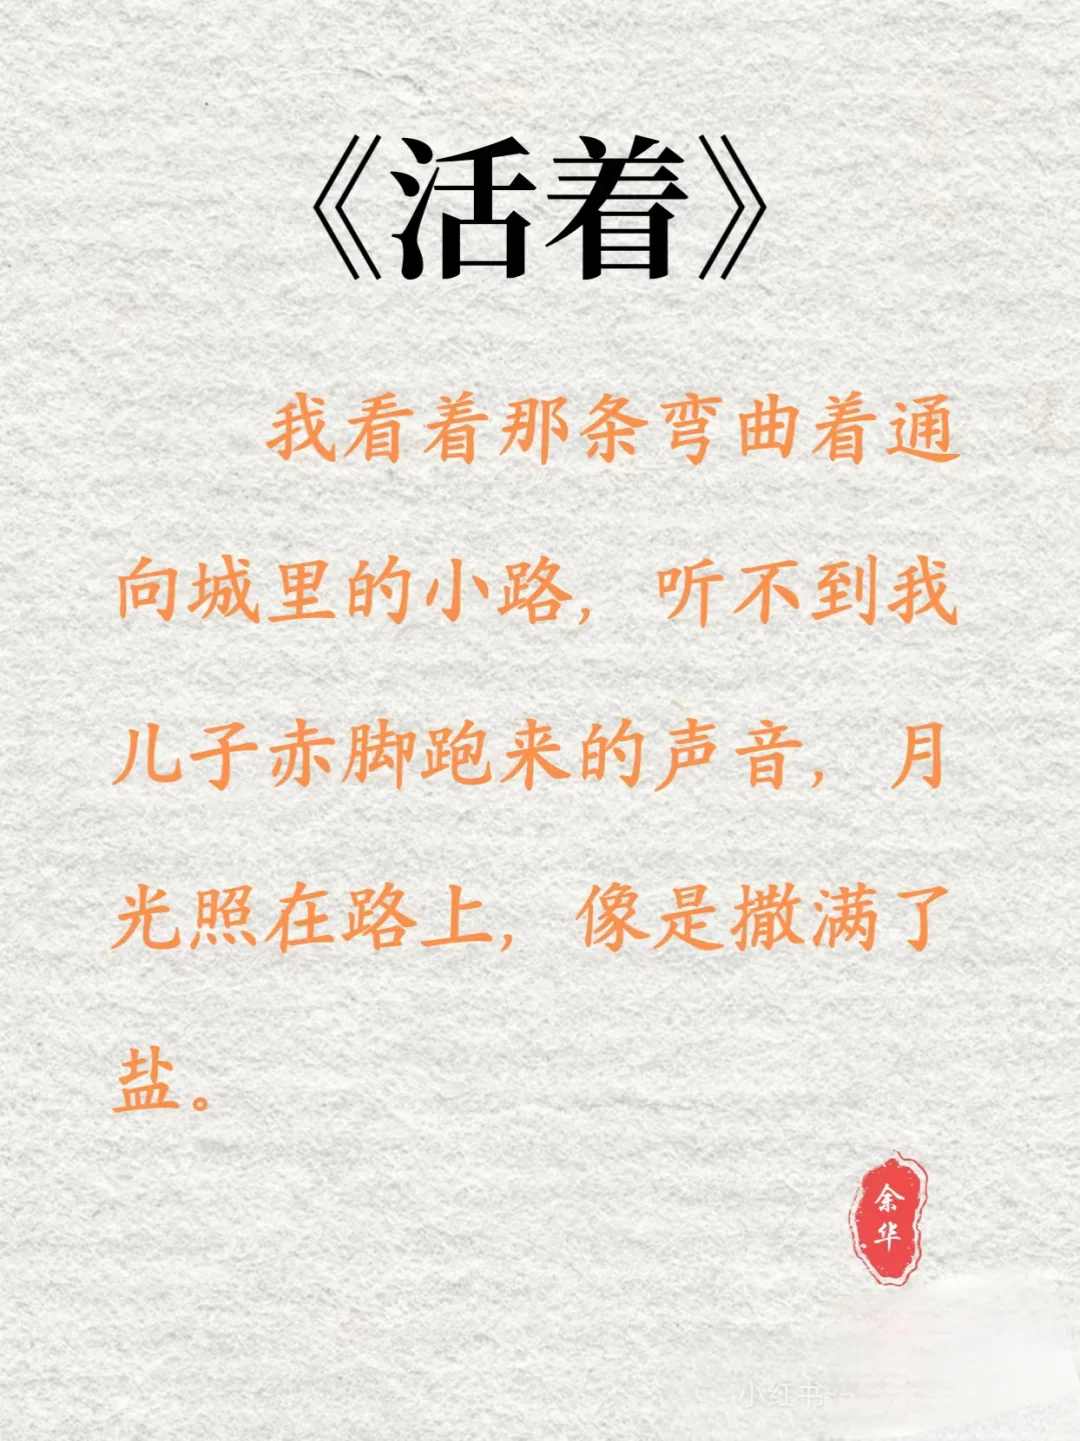 《活着》
我看着那条弯曲着通
向城里的小路，听不到我
儿子赤脚跑来的声音，月
光照在路上，像是撒满了
盐。
余
华
小红书